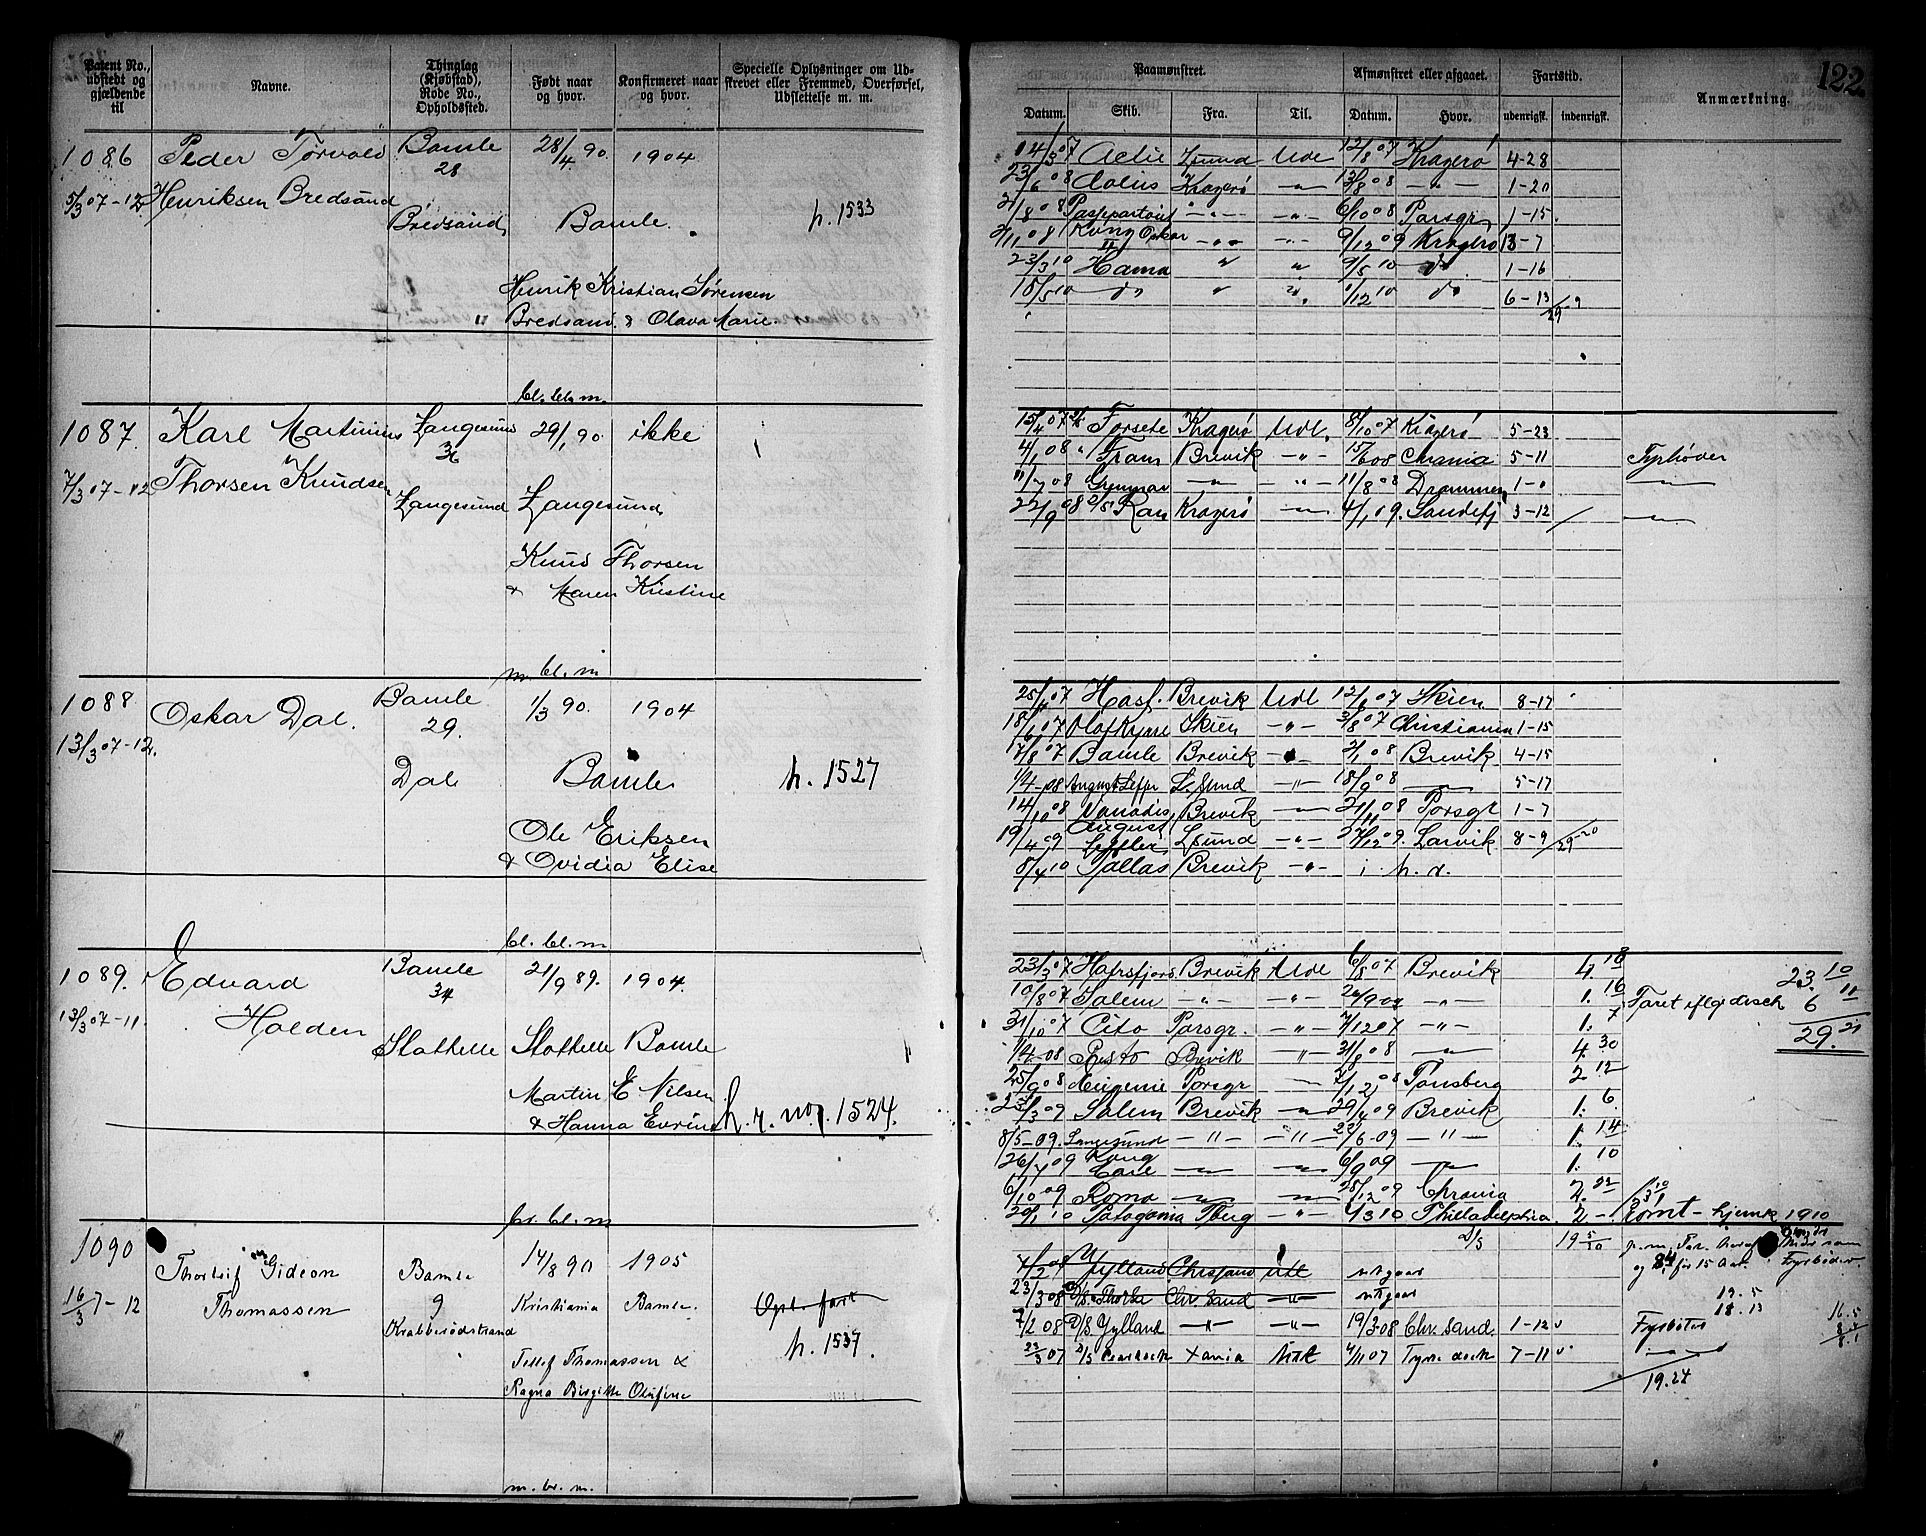 122.
Patent No., udstedt og gjældende til
Navne.
Thinglag (Kjøbstad), Rode No., Opholdssted.
Født naar og hvor.
Konfirmeret naar og hvor.
Specielle Oplysninger om Udskrevet eller Fremmed, Overførsel, Udslettelse m. m.
Paamønstret.
Afmønstret eller afgaaet.
Fartstid.
Anmærkning.
Datum. Skib. Fra. Til. Datum. Hvor. udenrigsk. indenrigsk.
1086 Peder Torvald Bamle 28/4 90. 1904
28
5/3 07-12 Henriksen Bredsand
Bredsand Bamle. h. 1533
Henrik Kristian Sørensen
" Bredsand & Olava Marie.
bl. bl. m.
14/3 07 Aelie Lsund Udl 12/8 07 Kragerø 4-28
23/6 08 Aolus Kragerø -"- 13/8 08 -"- 1-20
21/8 08 Passepartout -"- -"- 6/10 08 Porsgr 1-15.
2/11 08 Kong Oskar II -"- -"- 9/12 09 Kragerø 13-7
23/3 10 Hama " " 9/5 10 do 1-16
18/5 10 do " " 1/12 10 do 6-13 /29-9
1087. Karl Martinius Langesund 29/1 90. ikke
36
7/3 07-12 Thorsen Knudsen Langesund Langesund
Knud Thorsen
& Maren Kristine
m. bl. m
15/4 07 Forsete Kragerø Udl. 8/10 07 Kragerø 5-23
4/1 08 Fram Brevik -"- 15/6 08 Chrania 5-11 Fyrbøder
11/7 08 Grenmar -"- -"- 11/8 08 Drammen 1-0 -"-
22/9 08 Ran Kragerø -"- 4/1 09. Sandefj 3-12 -"-
1088. Oskar Dal. Bamle 1/3 90. 1904
29.
13/3 07-12.
Dal Bamle h. 1527
Ole Eriksen
& Ovidia Elise
bl. bl. m
25/4 07 Hasf. Brevik Udl 12/6 07 Skien 8-17
18/6 07 Olaf Kyrre Skien -"- 3/8 07 Christiania 1-15
17/8 07 Bamle Brevik -"- 2/1 08 Brevik 4-15
1/4-08 August Leffler L.Sund -"- 18/9 08 -"- 5-17
14/10 08 Vanadis Brevik -"- 21/11 08 Porsgr 1-7
19/4 09 August Leffler Lsund -"- 27/12 09. Larvik 8-9 /29-20
8/4 10 Pallas Brevik -"- i. h. r.
1089. Edvard Bamle 21/9 89. 1904.
34
13/3 07-11. Holden
Stathelle Stathelle Bamle
Martin E Nilsen
& Hanna Evrine h. r. no. 1524.
br. bl. m
23/3 07 Hafrsfjord Brevik Udl 6/8 07 Brevik 4. 18
10/8 07 Salem -"- -"- 26/9 07 -"- 1. 16
31/10 07 Cito Porsgr. -"- 7/12 07 -"- 1. 7
1/4-08 Risto Brevik -"- 31/8 08 -"- 4. 30
25/9 08 Eugenie Porsgr -"- 7/12 08 Tønsberg 2 12
23/3 09 Salem Brevik -"- 29/4 09 Brevik 1. 6
8/5-09. Langesund -"- -"- 22/6-09 -"- 1. 14
26/7 09 Kong Carl -"- -"- 6/9 09 -"- 1. 10
6/10 09 Roma -"- -"- 28/12 09 Chrania 2. 22
20/1 10 Patagonia Tberg -"- 4/3 10 Philladelphia 2-. rømt - hjemk 1910
23. 10
6 11
29. 21
1090 Thorleif Gideon Bamle 14/8 90 1905
16/3 7-12 Thomassen 9 Kristiania Bamle.
Krabberødstrand
h. 1537.
Tellef Thomassen &
Ragna Birgitte Olufine
m. br. m.
7/2 08 Jylland Chrssand Udl utgaar
23/3 08 D/S Thorsa Chr. Sand -"- utgaar
7/2 08 D/S Jylland -"- -"- 19/3-08 Chr. Sand. 1-12 Fyrbøter
23/3 07 D/S Xania Udl 4/11 07 Tyne dock 7-11 -"-
19.24